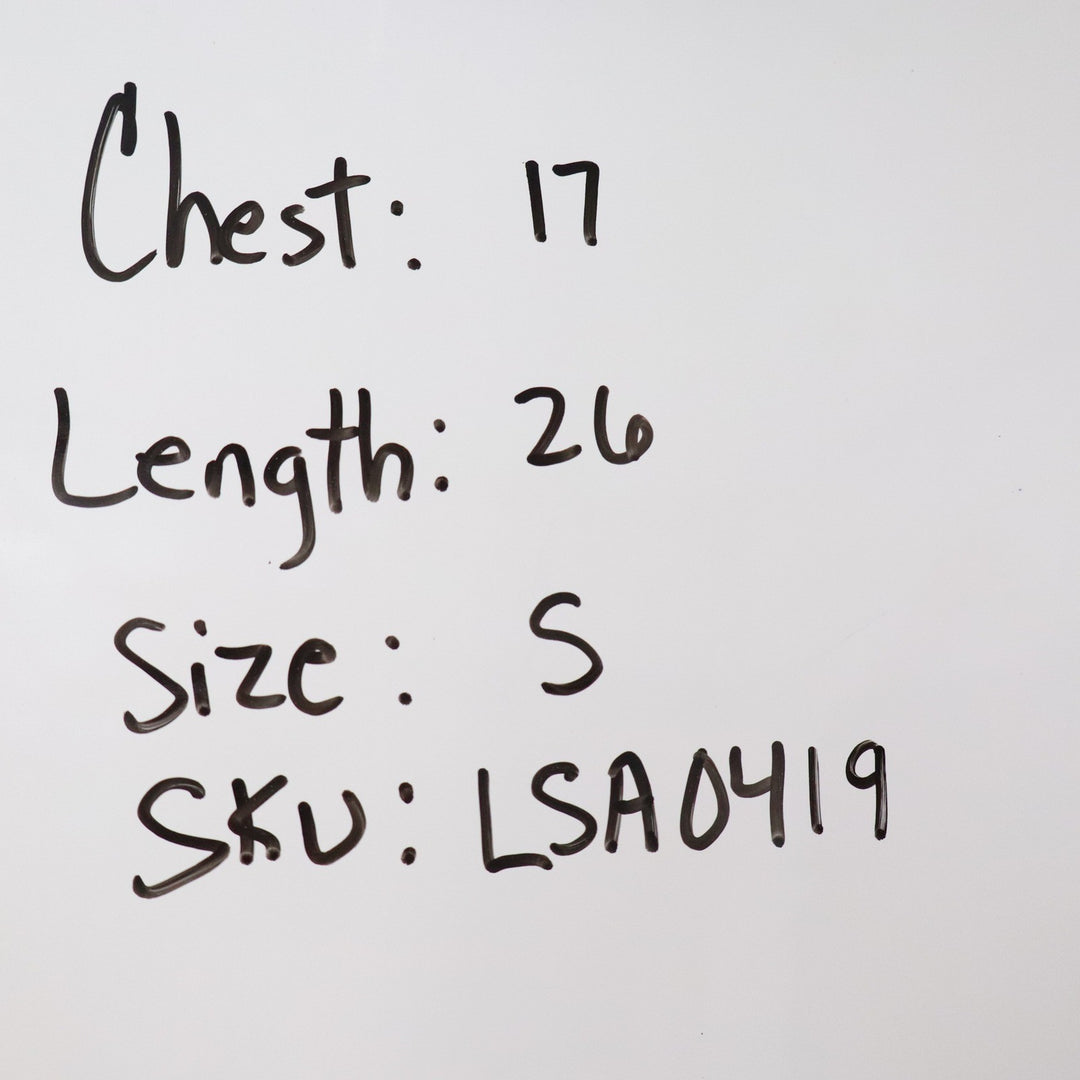 Chest: 17
Length: 26
Size: S
SKU: LSA0419